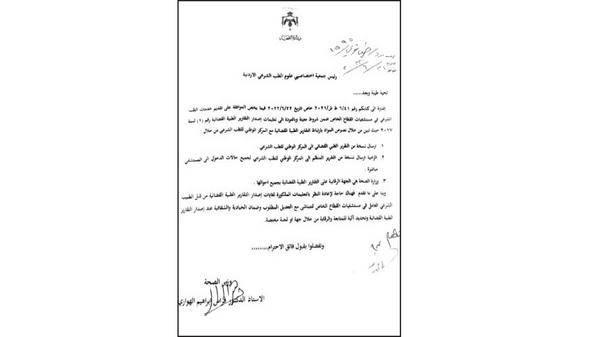 وزارة الصحة
رئيس جمعية اختصاصيي علوم الطب الشرعي الاردنية
تحية طيبة وبعد...
اشارة الى كتابكم رقم فيما يخص الموافقة على تقديم خدمات الطب
الشرعي في مستشفيات القطاع الخاص ضمن شروط معينة وبالعودة الى تعليمات إصدار التقارير الطبية القضائية رقم لسنة
٢٠١٧ حيث تبين من خلال نصوص المواد بارتباط التقارير الطبية القضائية مع المركز الوطني للطب الشرعي من خلال
١. ارسال نسخة من التقرير الطبي القضائي الى المركز الوطني للطب الشرعي.
٢. الزامية ارسال نسخة من التقرير المنظم الى المركز الوطني للطب الشرعي لجميع حالات الدخول الى المستشفى
مباشرة.
٣. وزارة الصحة هي الجهة الرقابية على التقارير الطبية القضائية بجميع احوالها.
وبنا على ما تقدم فهناك حاجة لإعادة النظر بالتعليمات المذكورة لغايات إصدار التقارير الطبية القضائية من قبل الطبيب
الشرعي العامل في مستشفيات القطاع الخاص لتتماشى مع التعديل المطلوب وضمان الحيادية والشفافية عند إصدار التقارير
الطبية القضائية وتحديد آلية للمتابعة والرقابة من خلال جهة او لجنة مختصة.
وتفضلوا بقبول فائق الاحترام.......
وزير الصحة
الاستاذ الدكتور فراس ابراهيم الهواري